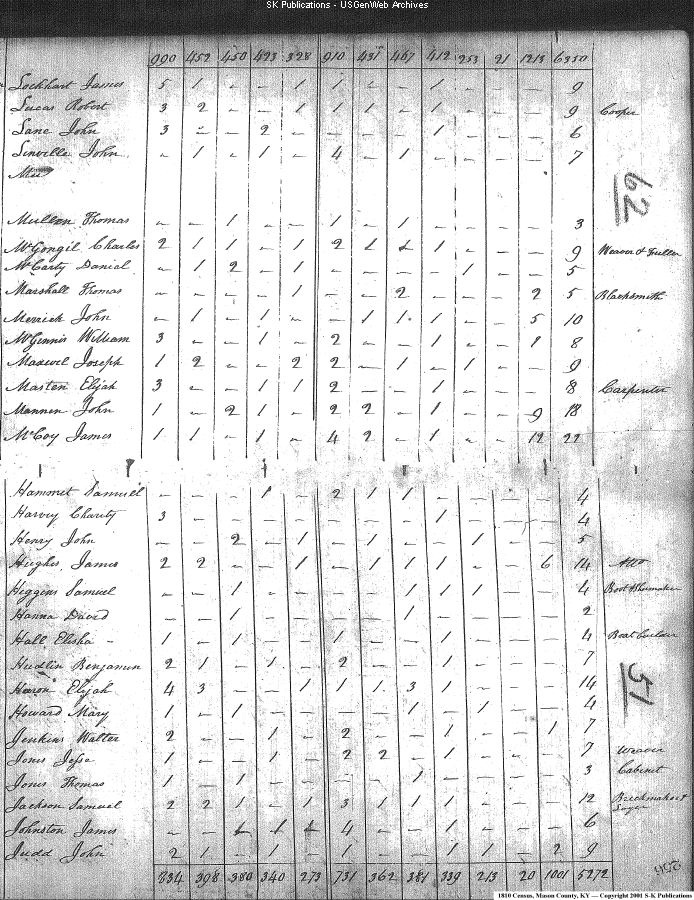 SK Publications - USGenWeb Archives
990 452 450 423 328 910 431 467 412 253 21 1213 6350
Lockhart James 5 1 - - 1 1 - - 1 - - - 9
Lucas Robert 3 2 - - 1 1 1 - 1 - - - 9 Cooper
Lane John 3 - - 2 - - - - 1 - - - 6
Linville John - 1 - 1 - 4 - 1 - - - - 7
62
Mullen Thomas - - 1 - - 1 - 1 - - - - 3
McGongil Charles 2 1 1 - 1 2 1 1 1 - - - 9 Weaver & Fuller
McCarty Daniel - 1 2 - 1 - - - - 1 - - 5
Marshall Thomas - - - - 1 - - 2 - - - 2 5 Blacksmith
Merrick John - 1 - 1 - - 1 1 1 - - 5 10
McGinnis William 3 - - 1 - 2 - - 1 - - 1 8
Maxwel Joseph 1 2 - - 2 2 - 1 - 1 - - 9
Masten Elijah 3 - - 1 1 2 - - 1 - - - 8 Carpenter
Mannen John 1 - 2 1 - 2 2 - 1 - - 9 18
McCoy James 1 1 - 1 - 4 2 - 1 - - 12 22
Hammet Samuel - - - 1 - 2 1 1 - - - - 4
Harvey Charity 3 - - - - - - - 1 - - - 4
Henry John - - 2 - 1 - 1 - - 1 - - 5
Hughes James 2 2 - - 1 - 1 1 1 - - 6 14 Atto
Higgins Samuel - - 1 - - - - 1 1 1 - - 4 Boot & Shumaker
Hanna David - - 1 - - - - 1 - - - - 2
Hall Elisha - 1 - 1 - - 1 - - 1 - - - 4 Boat builder
Hudlin Benjamin 2 1 - 1 - 2 - - 1 - - - 7
51
Haron Elijah 4 3 - - 1 1 1 3 1 - - - 14
Howard Mary 1 - 1 - - - - 1 - 1 - - 4
Jenkins Walter 2 - - 1 - 2 - - 1 - - 1 7
Jones Jesse 1 - - 1 - 2 2 - 1 - - - 7 Weaver
Jones Thomas 1 - 1 - - - - 1 - - - - 3 Cabinet
Jackson Samuel 2 2 1 - 1 3 1 1 1 - - - 12 Brickmaker &
Johnston James - - 1 1 1 4 - - 1 - - - 6
Judd John 2 1 - 1 - 1 - - 1 1 - 2 9
334 398 380 340 273 731 362 381 339 213 20 1001 5272
1810 Census, Mason County, KY — Copyright 2001 S-K Publications